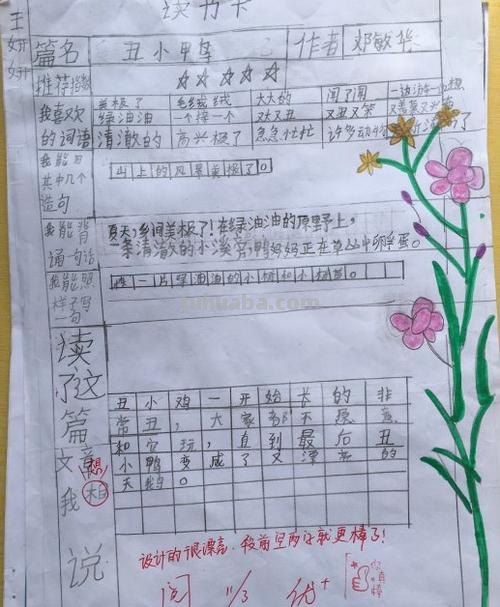 读书卡
王妍妍
篇名 丑小鸭 作者 邓敏华
推荐指数 ☆☆☆☆☆
我喜欢的词语
美极了 毛绒绒 大大的 闻了闻
绿油油 一个挨一个 又大又丑 又丑又笨
清澈的 高兴极了 急急忙忙
我能用其中几个造句
山上的风景美极了。
我能背诵一句话
夏天,乡间美极了!在绿油油的原野上,
一条清澈的小溪旁,鸭妈妈正在草丛中孵蛋。
我能照样子写一句
一片绿油油的小树和小
读了这篇文章我想说
丑小鸡一开始长的非
常丑,大家都不愿意
和它玩,直到最后丑
小鸭变成了又漂亮的
天鹅。
设计的很漂亮,段前空两格就更棒了!
阅 11/3 优+
你真棒